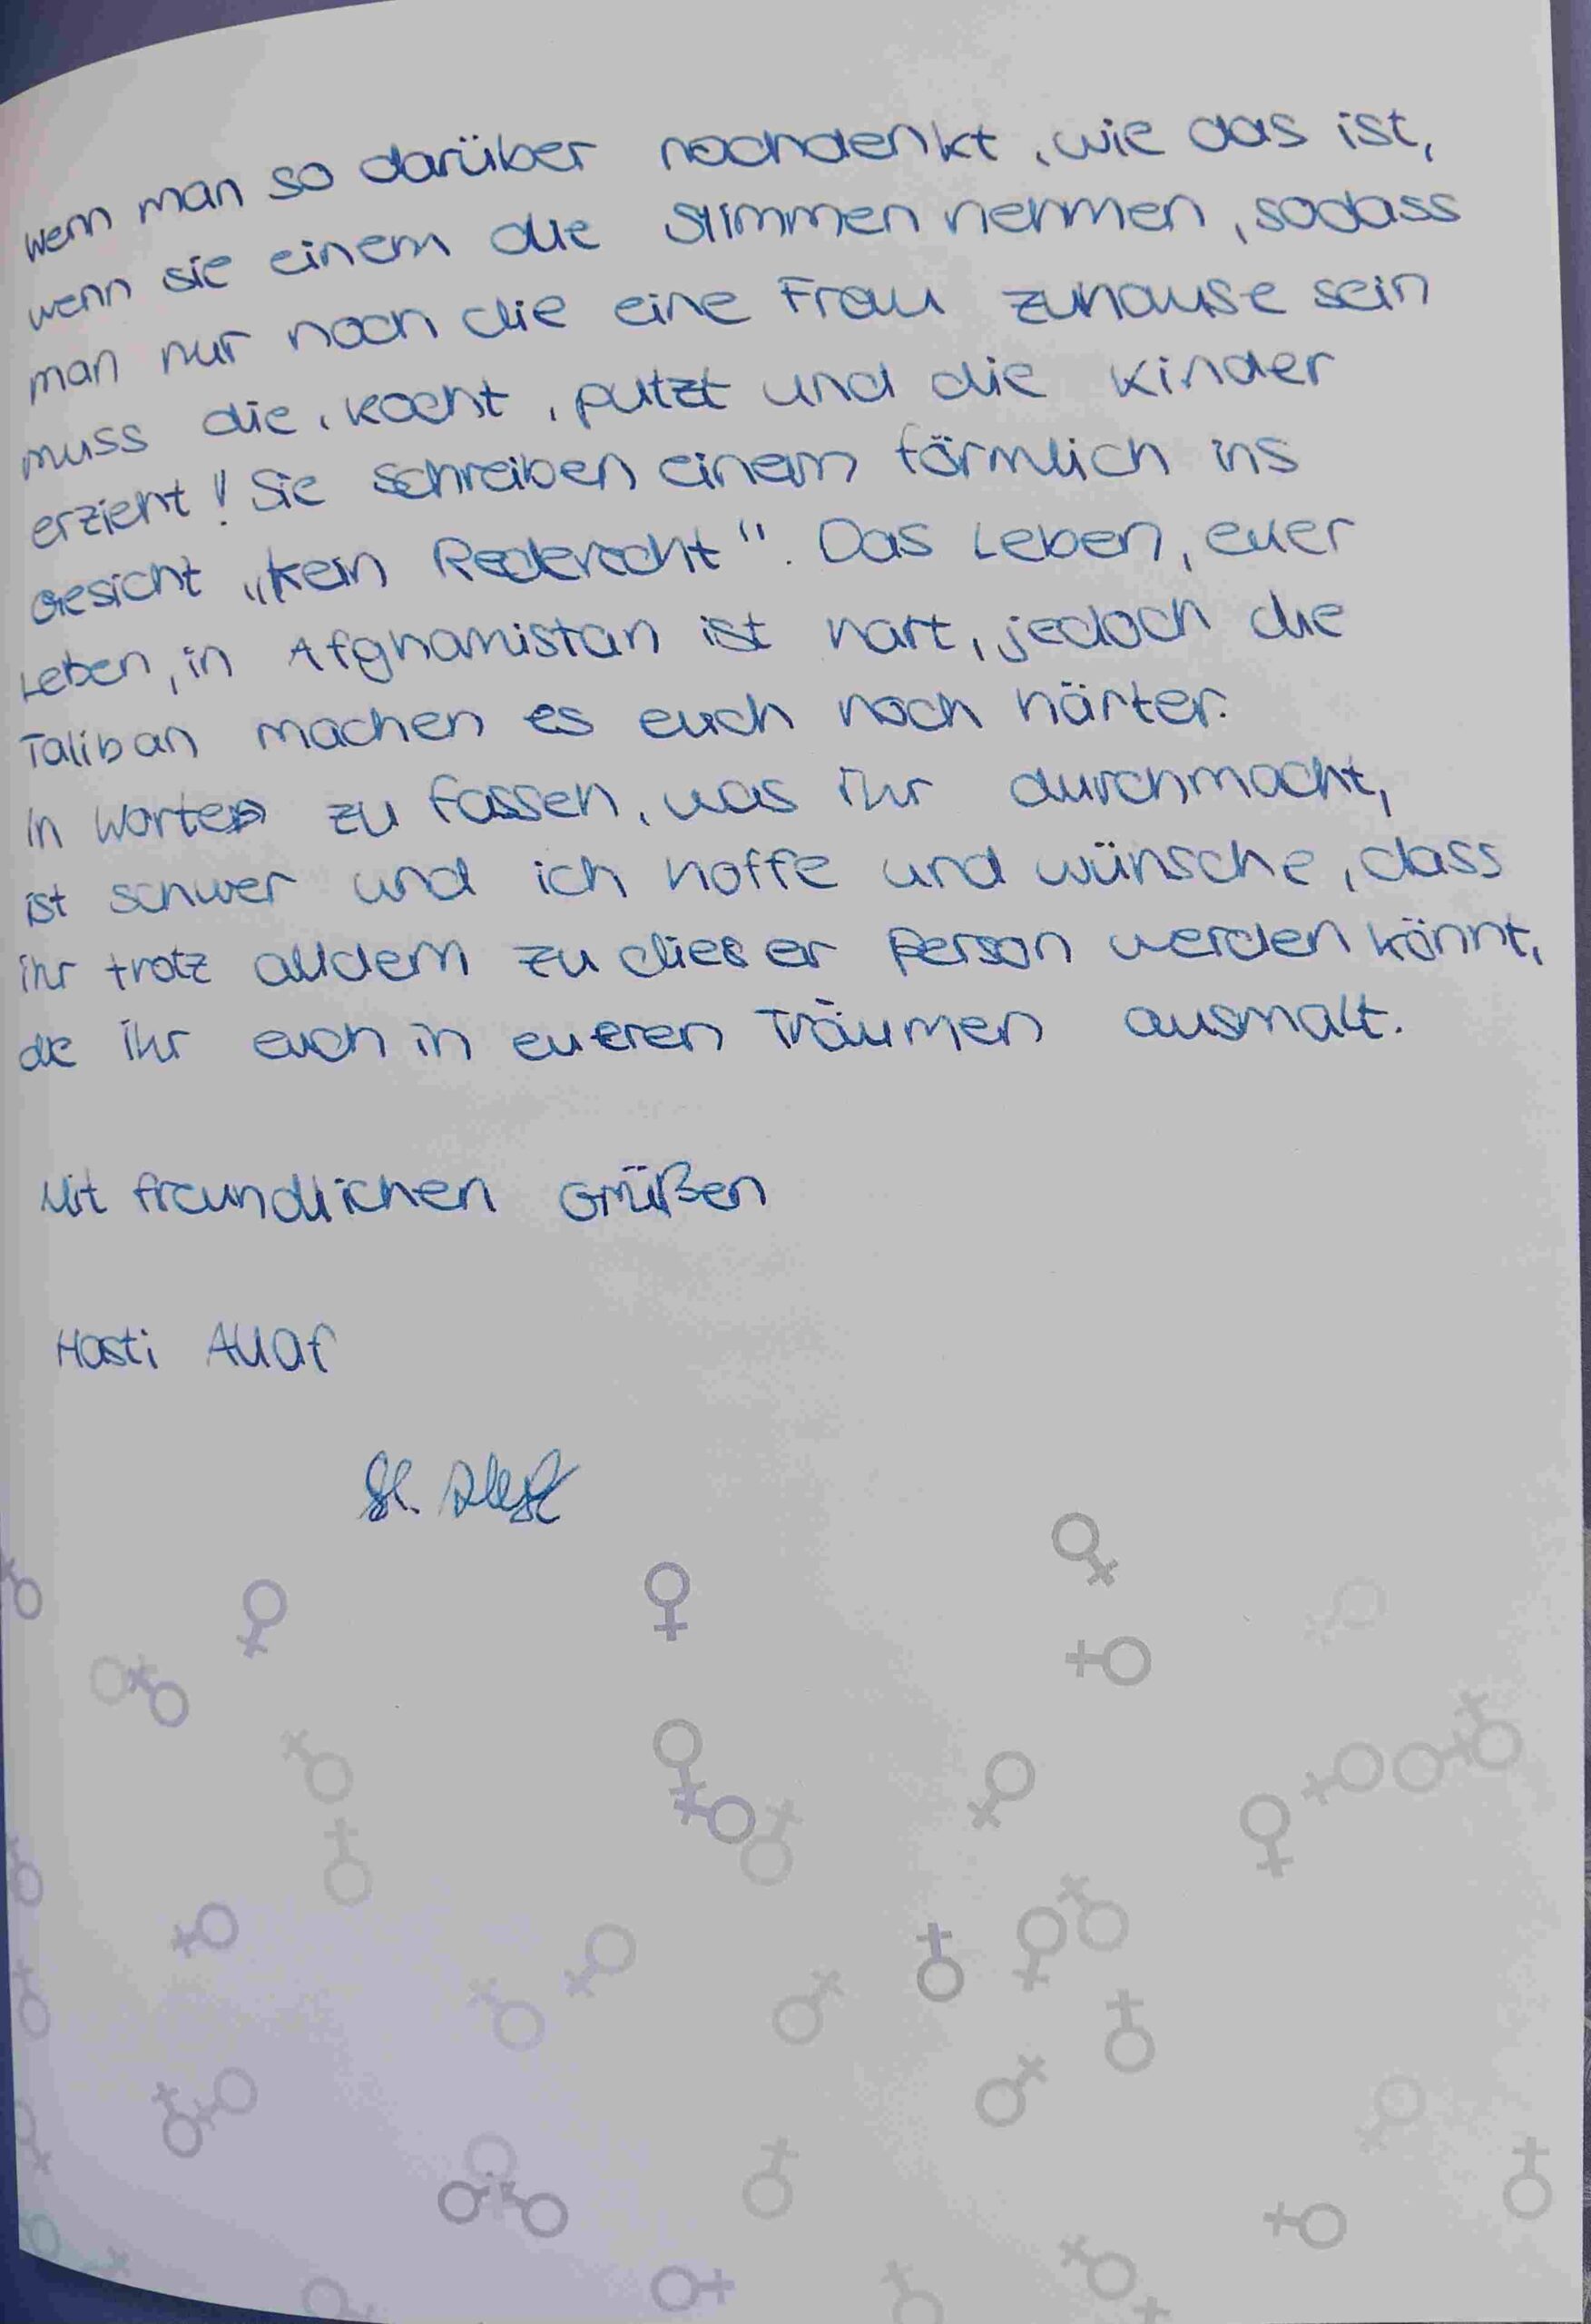 wenn man so darüber nachdenkt, wie das ist,
wenn sie einem die Stimmen nehmen, sodass
man nur noch die eine Frau zuhause sein
muss die, kocht, putzt und die Kinder
erzieht! Sie schreiben einem förmlich ins
Gesicht „kein Rederecht“. Das Leben, euer
Leben, in Afghanistan ist hart, jedoch die
Taliban machen es euch noch härter.
In Worten zu fassen, was ihr durchmacht,
ist schwer und ich hoffe und wünsche, dass
ihr trotz alldem zu dieser Person werden könnt,
die ihr euch in eueren Träumen ausmalt.
Mit freundlichen Grüßen
Hasti Allaf